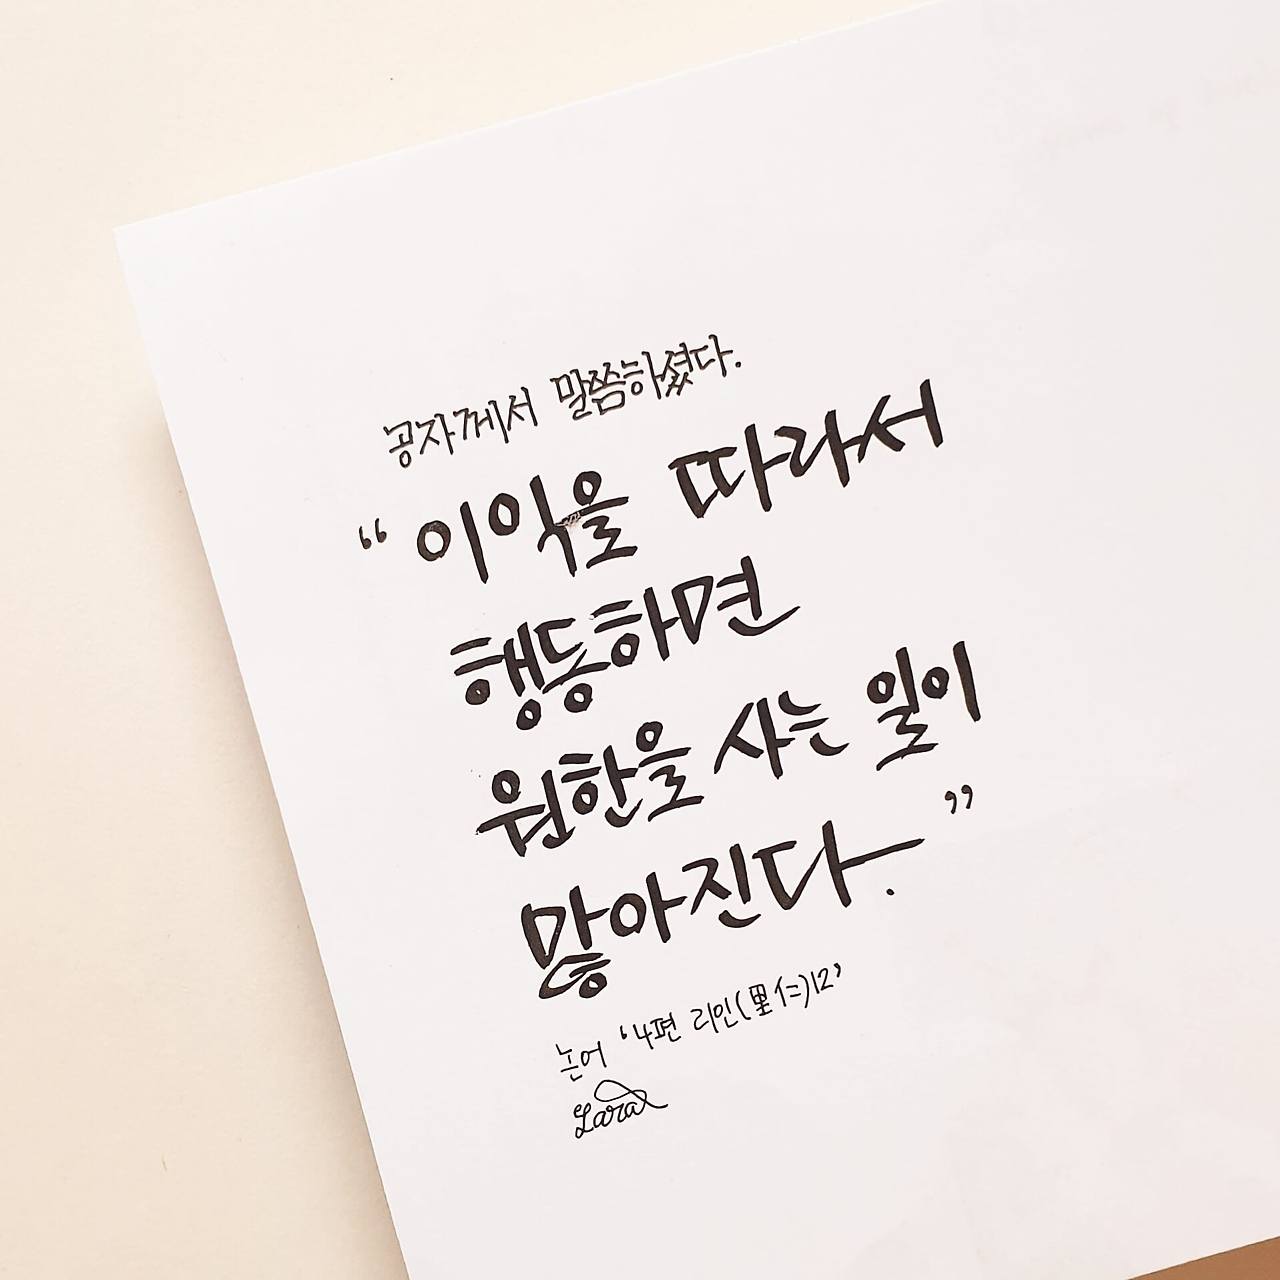 공자께서 말씀하셨다.
“이익을 따라서
행동하면
원한을 사는 일이
많아진다.”
논어 ‘4편 리인(里仁)12’
Lara